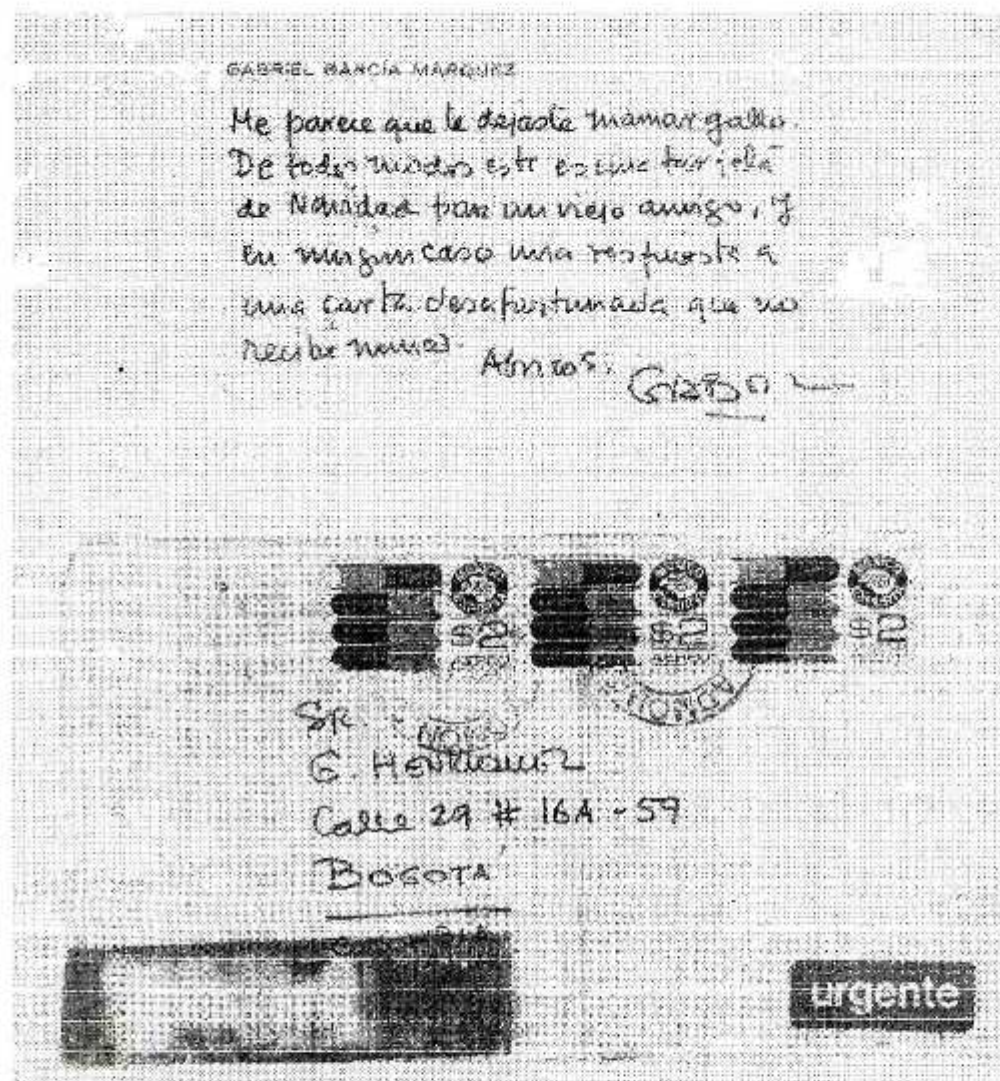 GABRIEL GARCÍA MARQUEZ
Me parece que te dejaste mamar gallo.
De todos modos este es una tarjeta
de Navidad para un viejo amigo, y
en ningun caso una respuesta a
una carta desafortunada que no
recibí nunca.
Abrazos,
GABO
$2 $2 $2
ADMON
Sr.
G. HENRIQUEZ
Calle 29 # 16A - 59
BOGOTA
urgente